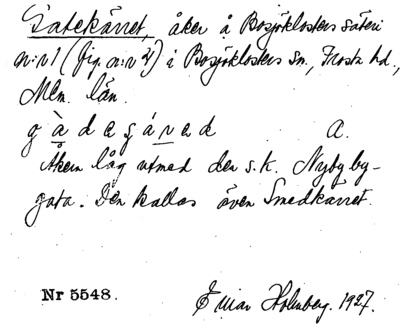 Gatekärret, åker å Bosjöklosters säteri
n:r 1 (fig. n:r 2) i Bosjöklosters sn., Frosta hd.,
Mlm. län.
A.
Åkern låg utmed den s.k. Nyby by-
gata. Den kallas även Smedkärret.
Nr 5548.
Einar Holmberg. 1927.